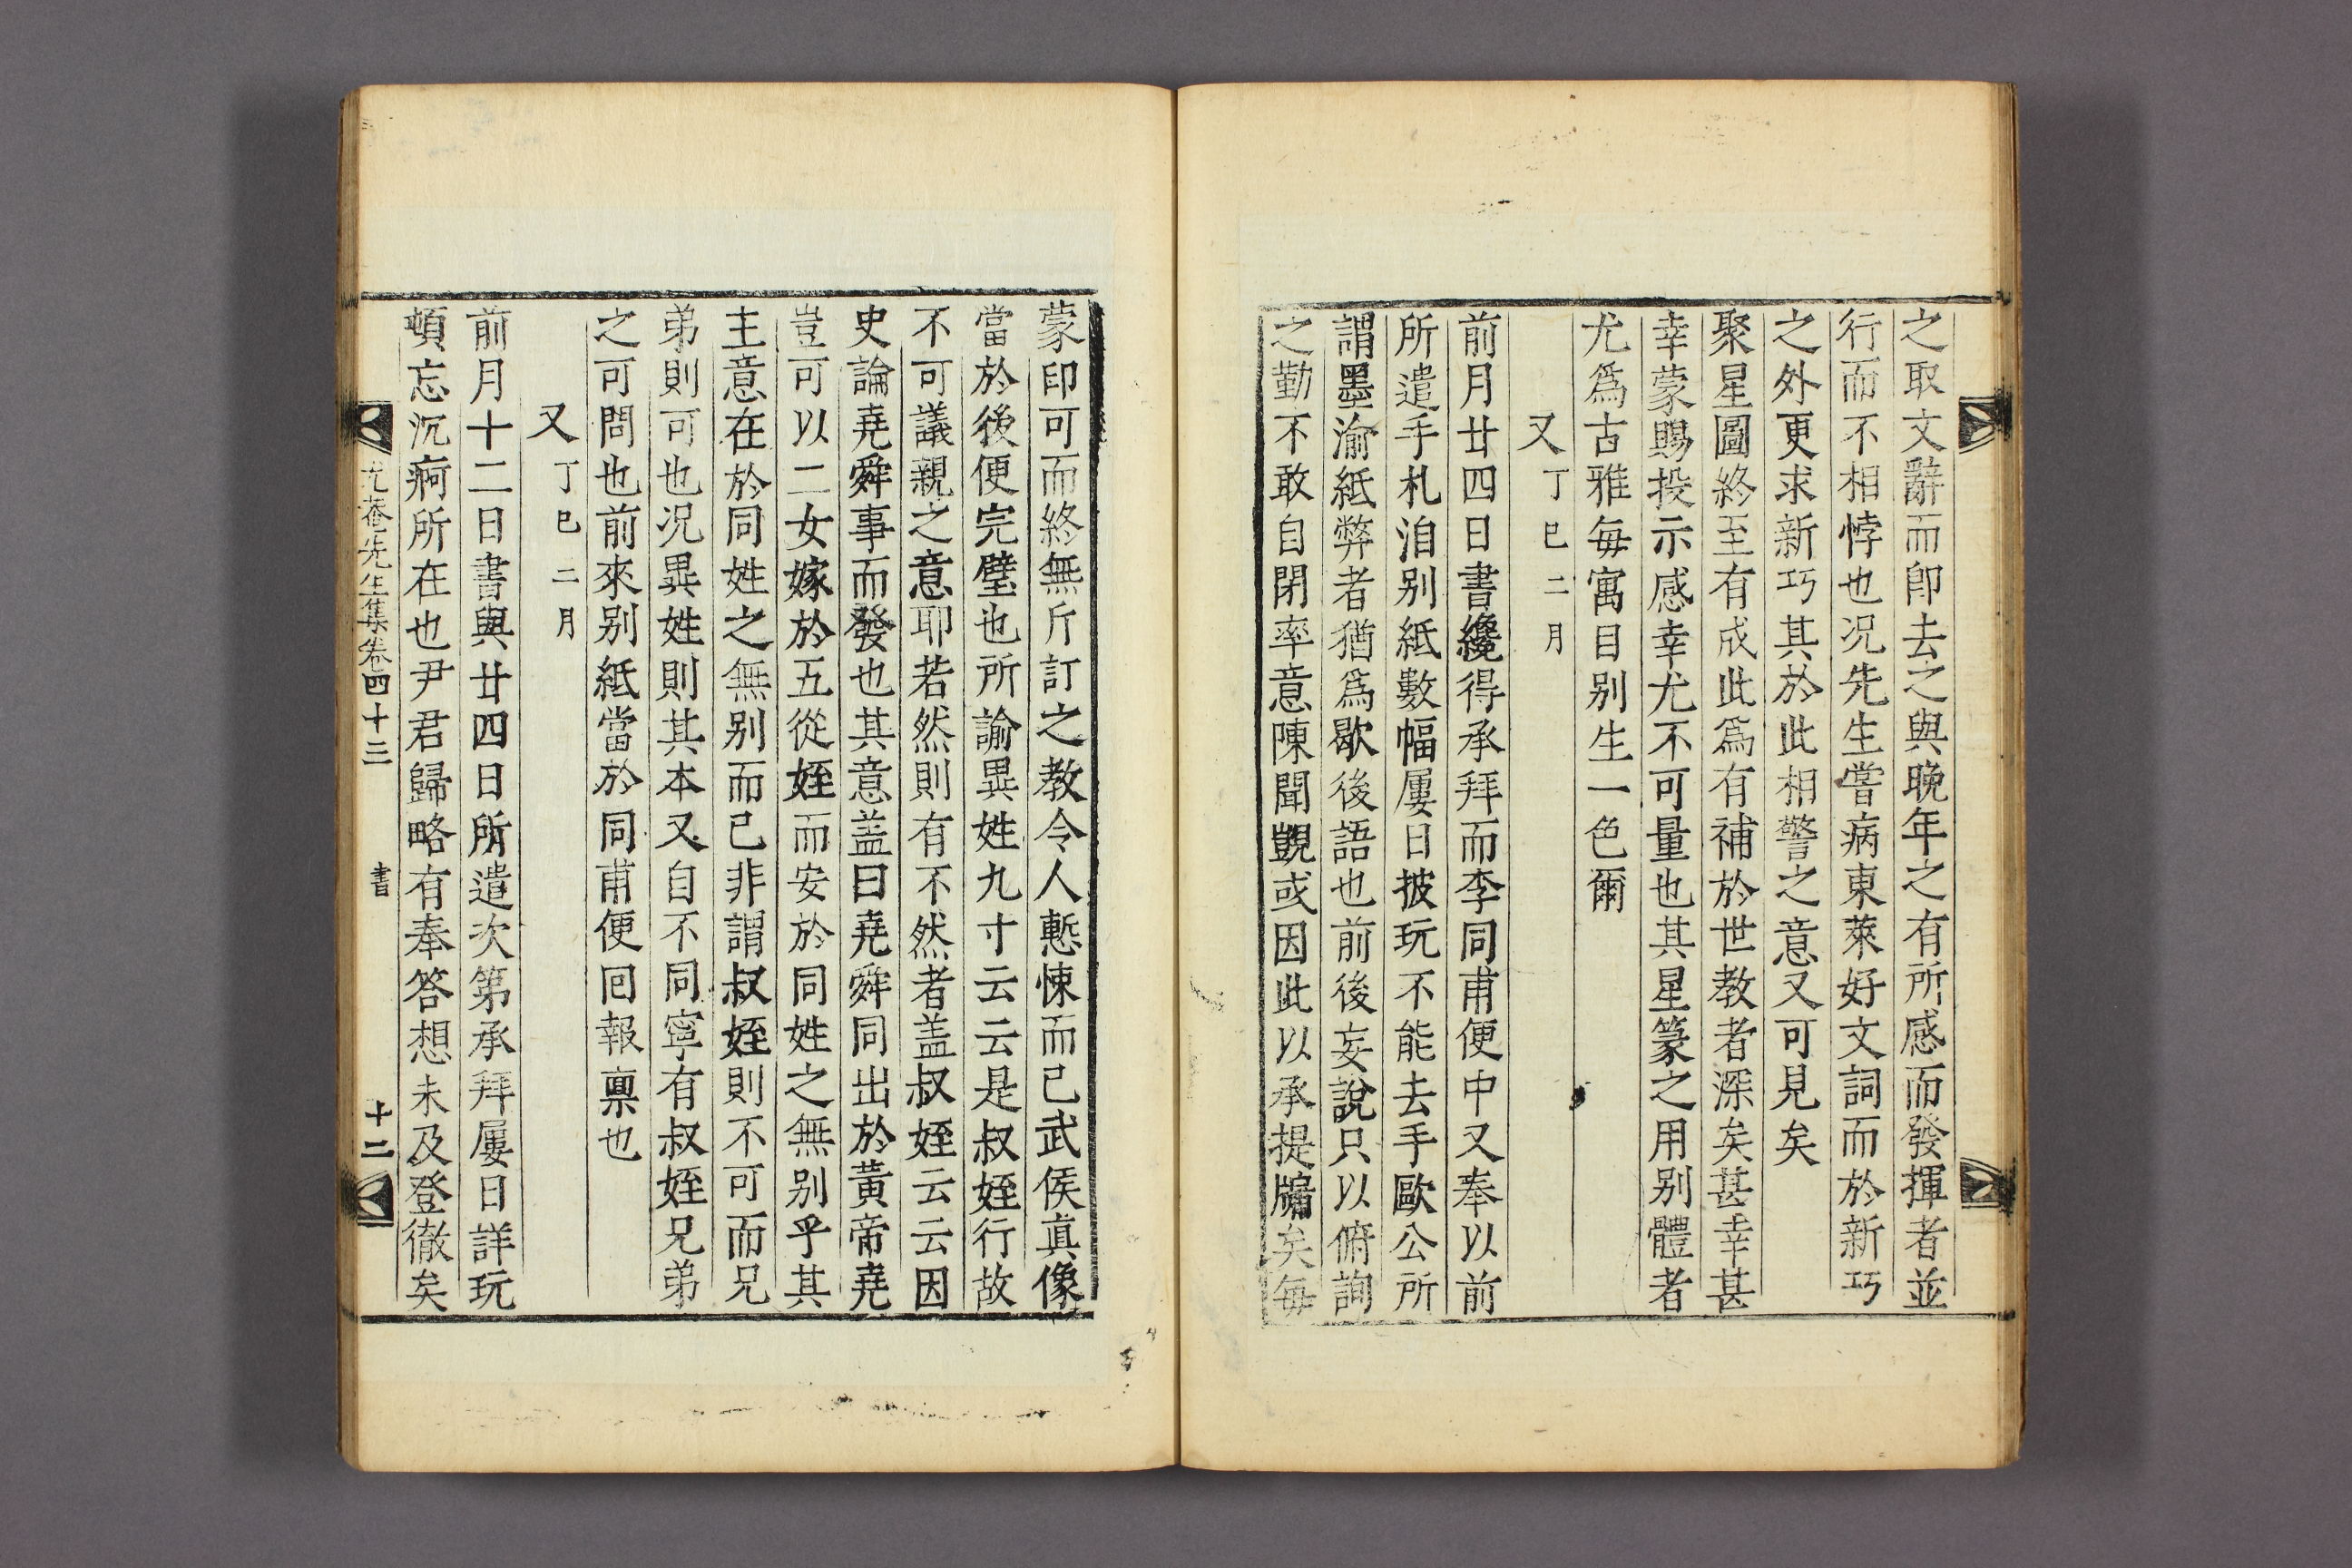 之取文辭而卽去之與晚年之有所感而發揮者並
行而不相悖也况先生嘗病東萊好文詞而於新巧
之外更求新巧其於此相警之意又可見矣
聚星圖終至有成此爲有補於世教者深矣甚幸甚
幸蒙賜投示感幸尤不可量也其星篆之用別體者
尤爲古雅每寓目別生一色爾
又丁巳二月
前月廿四日書纔得承拜而李同甫便中又奉以前
所遣手札洎別紙數幅屢日披玩不能去手歐公所
謂墨渝紙弊者猶爲歇後語也前後妄說只以俯詢
之勤不敢自閉率意陳聞覬或因此以承提牖矣每
蒙印可而終無斤訂之教令人慙悚而已武侯眞像
當於後便完璧也所諭異姓九寸云云是叔姪行故
不可議親之意耶若然則有不然者盖叔姪云云因
史論堯舜事而發也其意盖曰堯舜同出於黃帝堯
豈可以二女嫁於五從姪而安於同姓之無別乎其
主意在於同姓之無別而已非謂叔姪則不可而兄
弟則可也况異姓則其本又自不同寧有叔姪兄弟
之可問也前來別紙當於同甫便回報稟也
又丁巳二月
前月十二日書與廿四日所遣次第承拜屢日詳玩
頓忘沉痾所在也尹君歸略有奉答想未及登徹矣
尤菴先生集卷四十三 書 十二